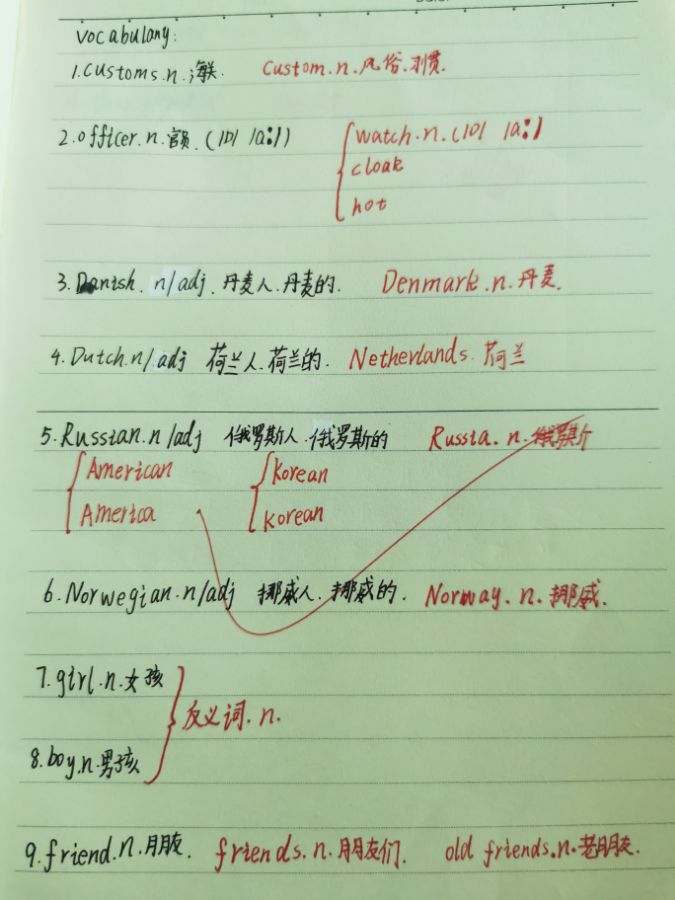 Vocabulany:
1.Customs.n.海关. Custom.n.风俗.习惯.
2.officer.n.官员.(/ɒ/ /ɑ:/) watch.n.(/ɒ/ /ɑ:/)
cloak
hot
3.Danish. n/adj.丹麦人.丹麦的. Denmark.n.丹麦.
4.Dutch.n/adj 荷兰人.荷兰的. Netherlands.荷兰
5.Russian.n/adj 俄罗斯人.俄罗斯的 Russia.n.俄罗斯
American Korean
America Korean
6.Norwegian.n/adj 挪威人.挪威的. Norway.n.挪威.
7.girl.n.女孩
反义词.n.
8.boy.n.男孩
9.friend.n.朋友. friends.n.朋友们. old friends.n.老朋友.